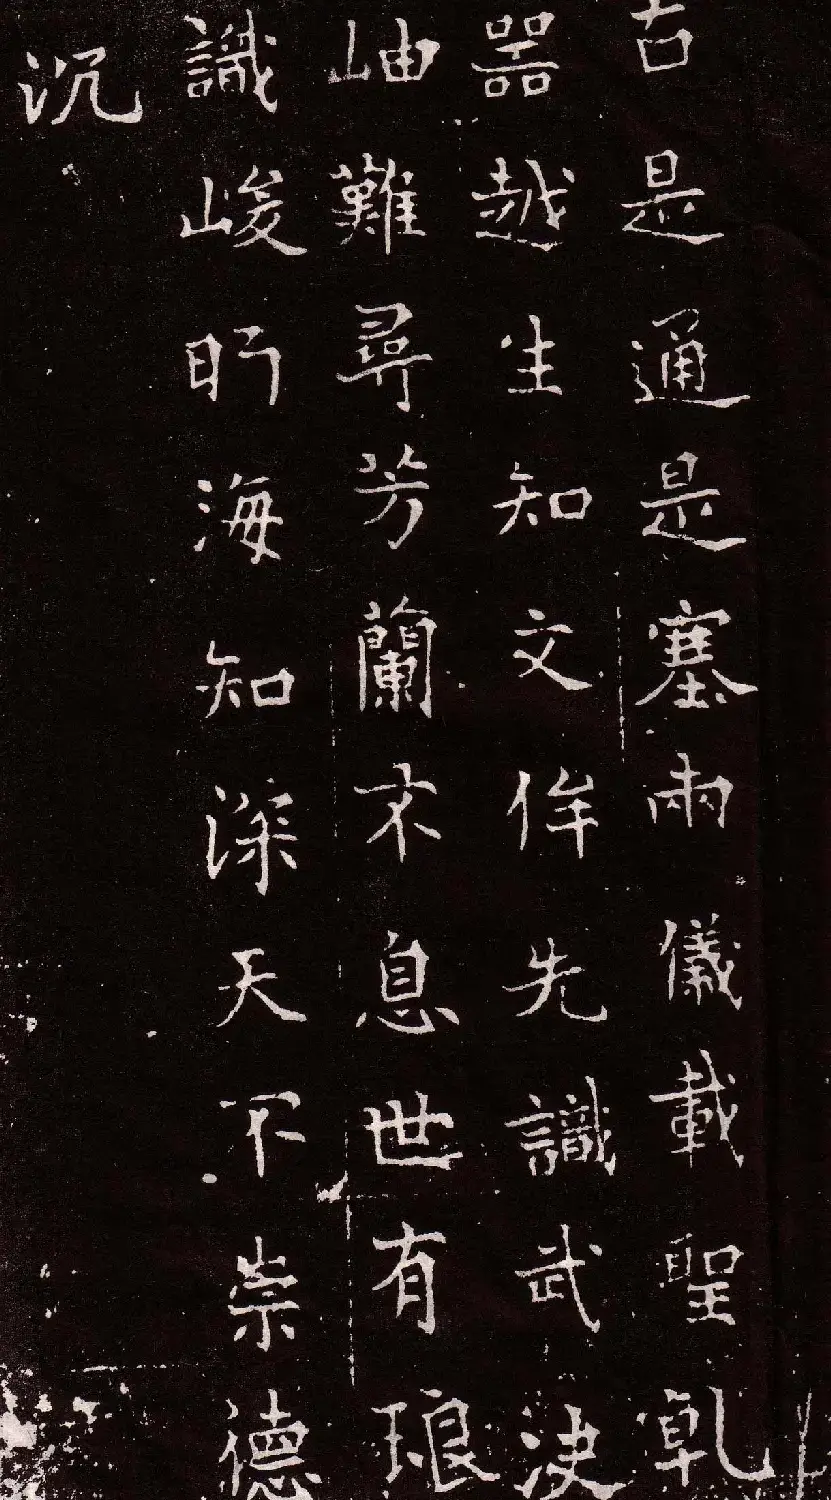 古是通是塞兩儀載聖乹
器越生知文侔先識武決
岫難尋芳蘭不息世有琅
識峻眄海知深天不崇德
沉